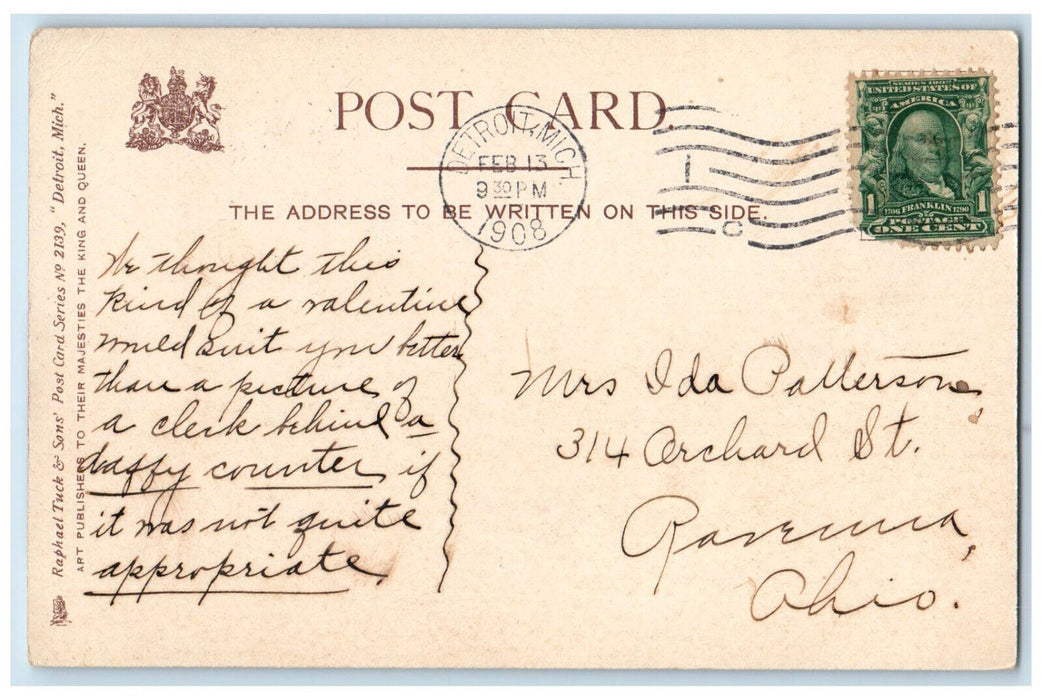 POST CARD
THE ADDRESS TO BE WRITTEN ON THIS SIDE.
DETROIT, MICH.
FEB 13
9 30 PM
1908
1
C
SERIES 1902
UNITED STATES OF
AMERICA
1706 FRANKLIN 1790
POSTAGE
1 ONE CENT 1
Raphael Tuck & Sons' Post Card Series No 2139, "Detroit, Mich."
ART PUBLISHERS TO THEIR MAJESTIES THE KING AND QUEEN.
We thought this
kind of a valentine
would suit you better
than a picture of
a clerk behind a
daffy counter, if
it was not quite
appropriate.
Mrs Ida Patterson,
314 Orchard St.
Ravenna,
Ohio.